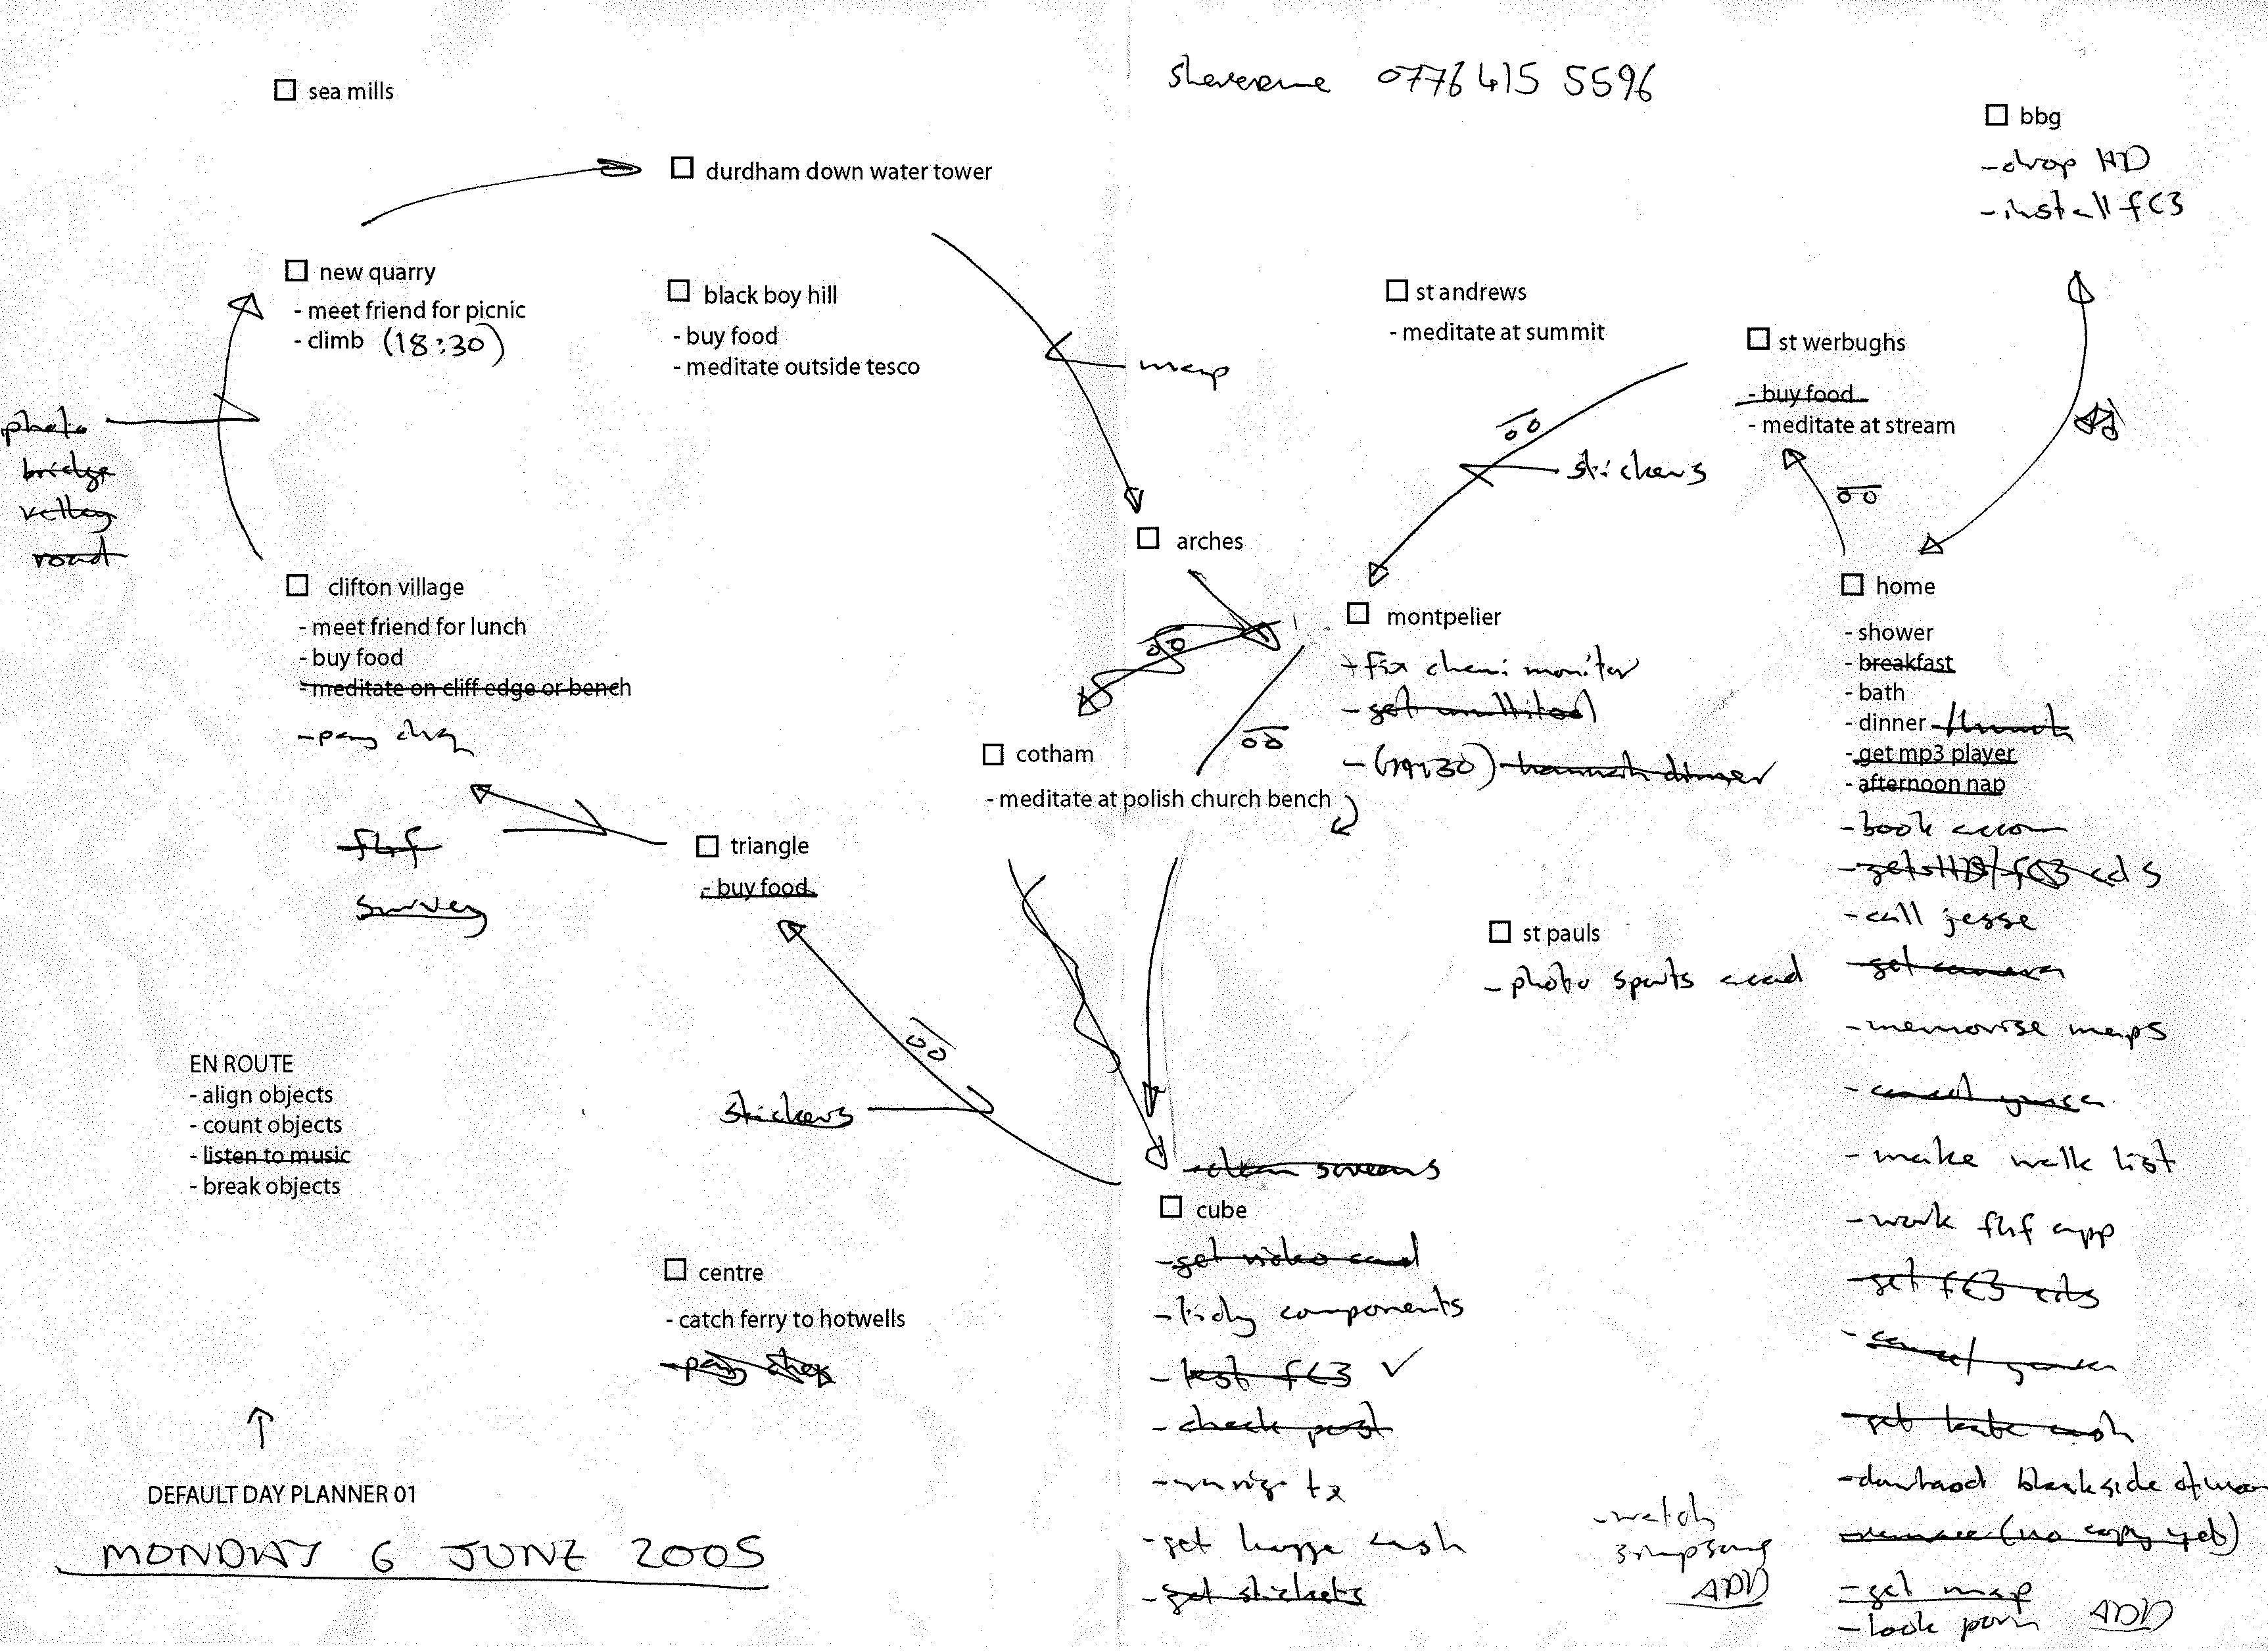 sheverene 0776 415 5596
sea mills
bbg
- drop HD
- install fc3
durdham down water tower
new quarry
- meet friend for picnic
- climb (18:30)
black boy hill
- buy food
- meditate outside tesco
map
st andrews
- meditate at summit
st werbughs
- buy food
- meditate at stream
stickers
photo
bridge
valley
road
arches
clifton village
- meet friend for lunch
- buy food
- meditate on cliff edge or bench
- pay chq
montpelier
- fix cheni monitor
- get multitool
- (19:30) hannah dinner
home
- shower
- breakfast
- bath
- dinner /lunch
- get mp3 player
- afternoon nap
- book accom
- get HD/fc3 cds
- call jesse
- get camera
- memorise maps
- cancel
- make walk list
- work fhf app
- get fc3 cds
- cancel
- get kate cash
- download blackside of
(no copy yet)
- get map
- look porn ADD
cotham
- meditate at polish church bench
fhf
survey
triangle
- buy food
st pauls
- photo sports
stickers
EN ROUTE
- align objects
- count objects
- listen to music
- break objects
- clean screens
cube
- get video card
- tidy components
- test fc3 ✓
- check post
- tx
- get cash
- get stickers
centre
- catch ferry to hotwells
- pay
- watch
simpsons
ADD
DEFAULT DAY PLANNER 01
MONDAY 6 JUNE 2005